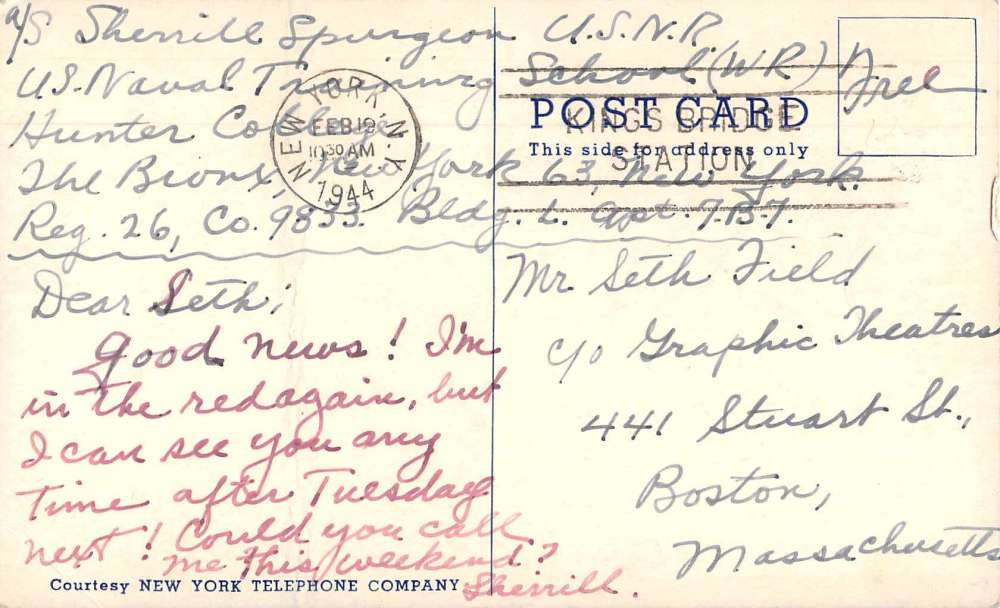 A/S Sherrill Spurgeon U.S.N.R.
U.S. Naval Training School (WR)
Hunter College
The Bronx, New York 63, New York.
Reg. 26, Co. 9833. Bldg. L. Apt. 7-B-7.
Free
NEW YORK, N.Y.
FEB 19
10 30 AM
1944
KINGSBRIDGE
STATION
POST CARD
This side for address only
Dear Seth;
Good news! I'm
in the red again, but
I can see you any
time after Tuesday
next! Could you call
me this weekend?
Sherrill.
Mr. Seth Field
c/o Graphic Theatres
441 Stuart St.,
Boston,
Massachusetts
Courtesy NEW YORK TELEPHONE COMPANY